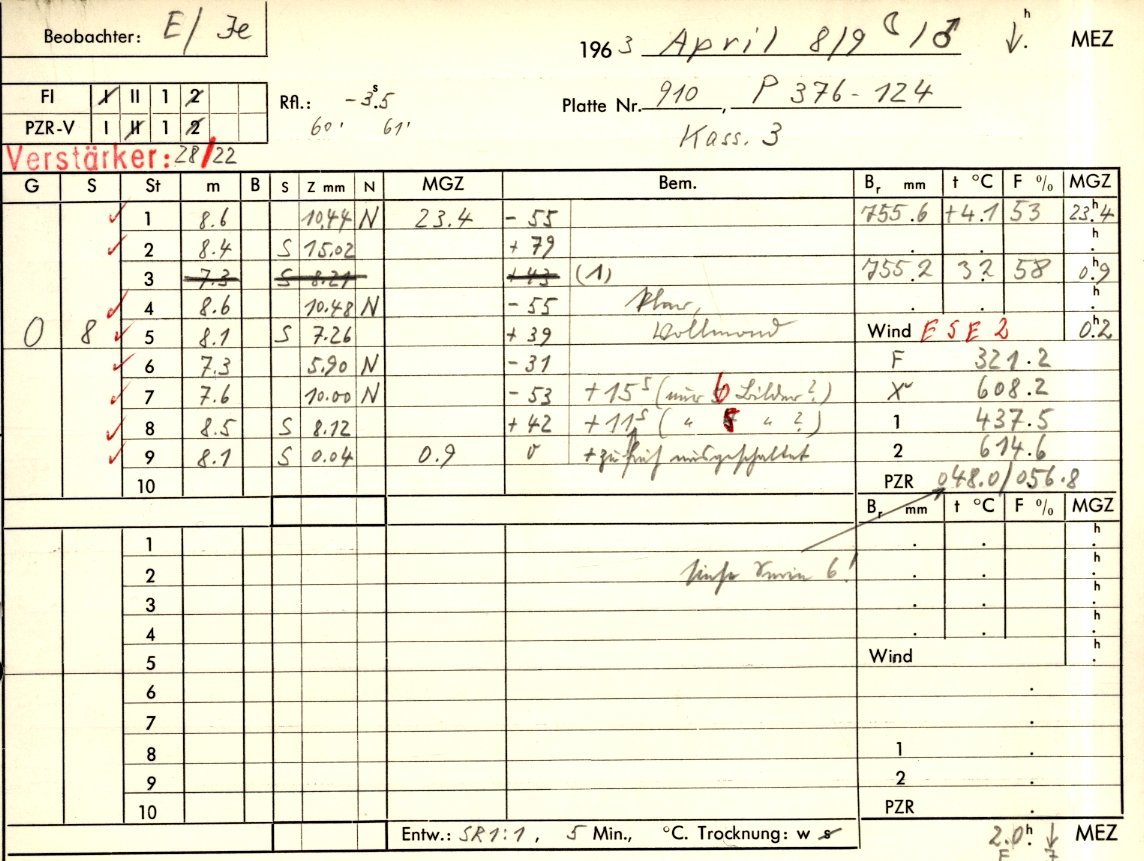 Beobachter: E/Je
1963 April 8/9 ☾/♂ ↓.h MEZ
FI I II 1 2
PZR-V I II 1 2
Rfl.: -3.s5
60' 61'
Platte Nr. 910, P 376-124
Kass. 3
Verstärker: 28/22
G S St m B S Z mm N MGZ Bem. Br mm t °C F % MGZ
✓ 1 8.6 10.44 N 23.4 - 55 755.6 +4.1 53 23.h4
✓ 2 8.4 S 15.02 + 79 . . h.
3 7.3 S 8.21 +43 (1) 755.2 3.2 58 0.h9
✓ 4 8.6 10.48 N - 55 Klar, . . h.
0 8 ✓ 5 8.1 S 7.26 + 39 Vollmond Wind ESE 2 0.h2
✓ 6 7.3 5.90 N - 31 F 321.2
✓ 7 7.6 10.00 N - 53 +15s (nur 6 Bilder?) X 608.2
✓ 8 8.5 S 8.12 + 42 +11s ( " 8 " ? ) 1 437.5
✓ 9 8.1 S 0.04 0.9 0 + zu früh ausgeschaltet 2 614.6
10 PZR 048.0/056.8
Br mm t °C F % MGZ
1 . . h.
2 siehe 6! h.
3 . . h.
4 . . h.
5 Wind h.
6 .
7 .
8 1 .
9 2 .
10 PZR .
Entw.: SR1:1, 5 Min., °C. Trocknung: w s 2.0h ↓ MEZ
F 7